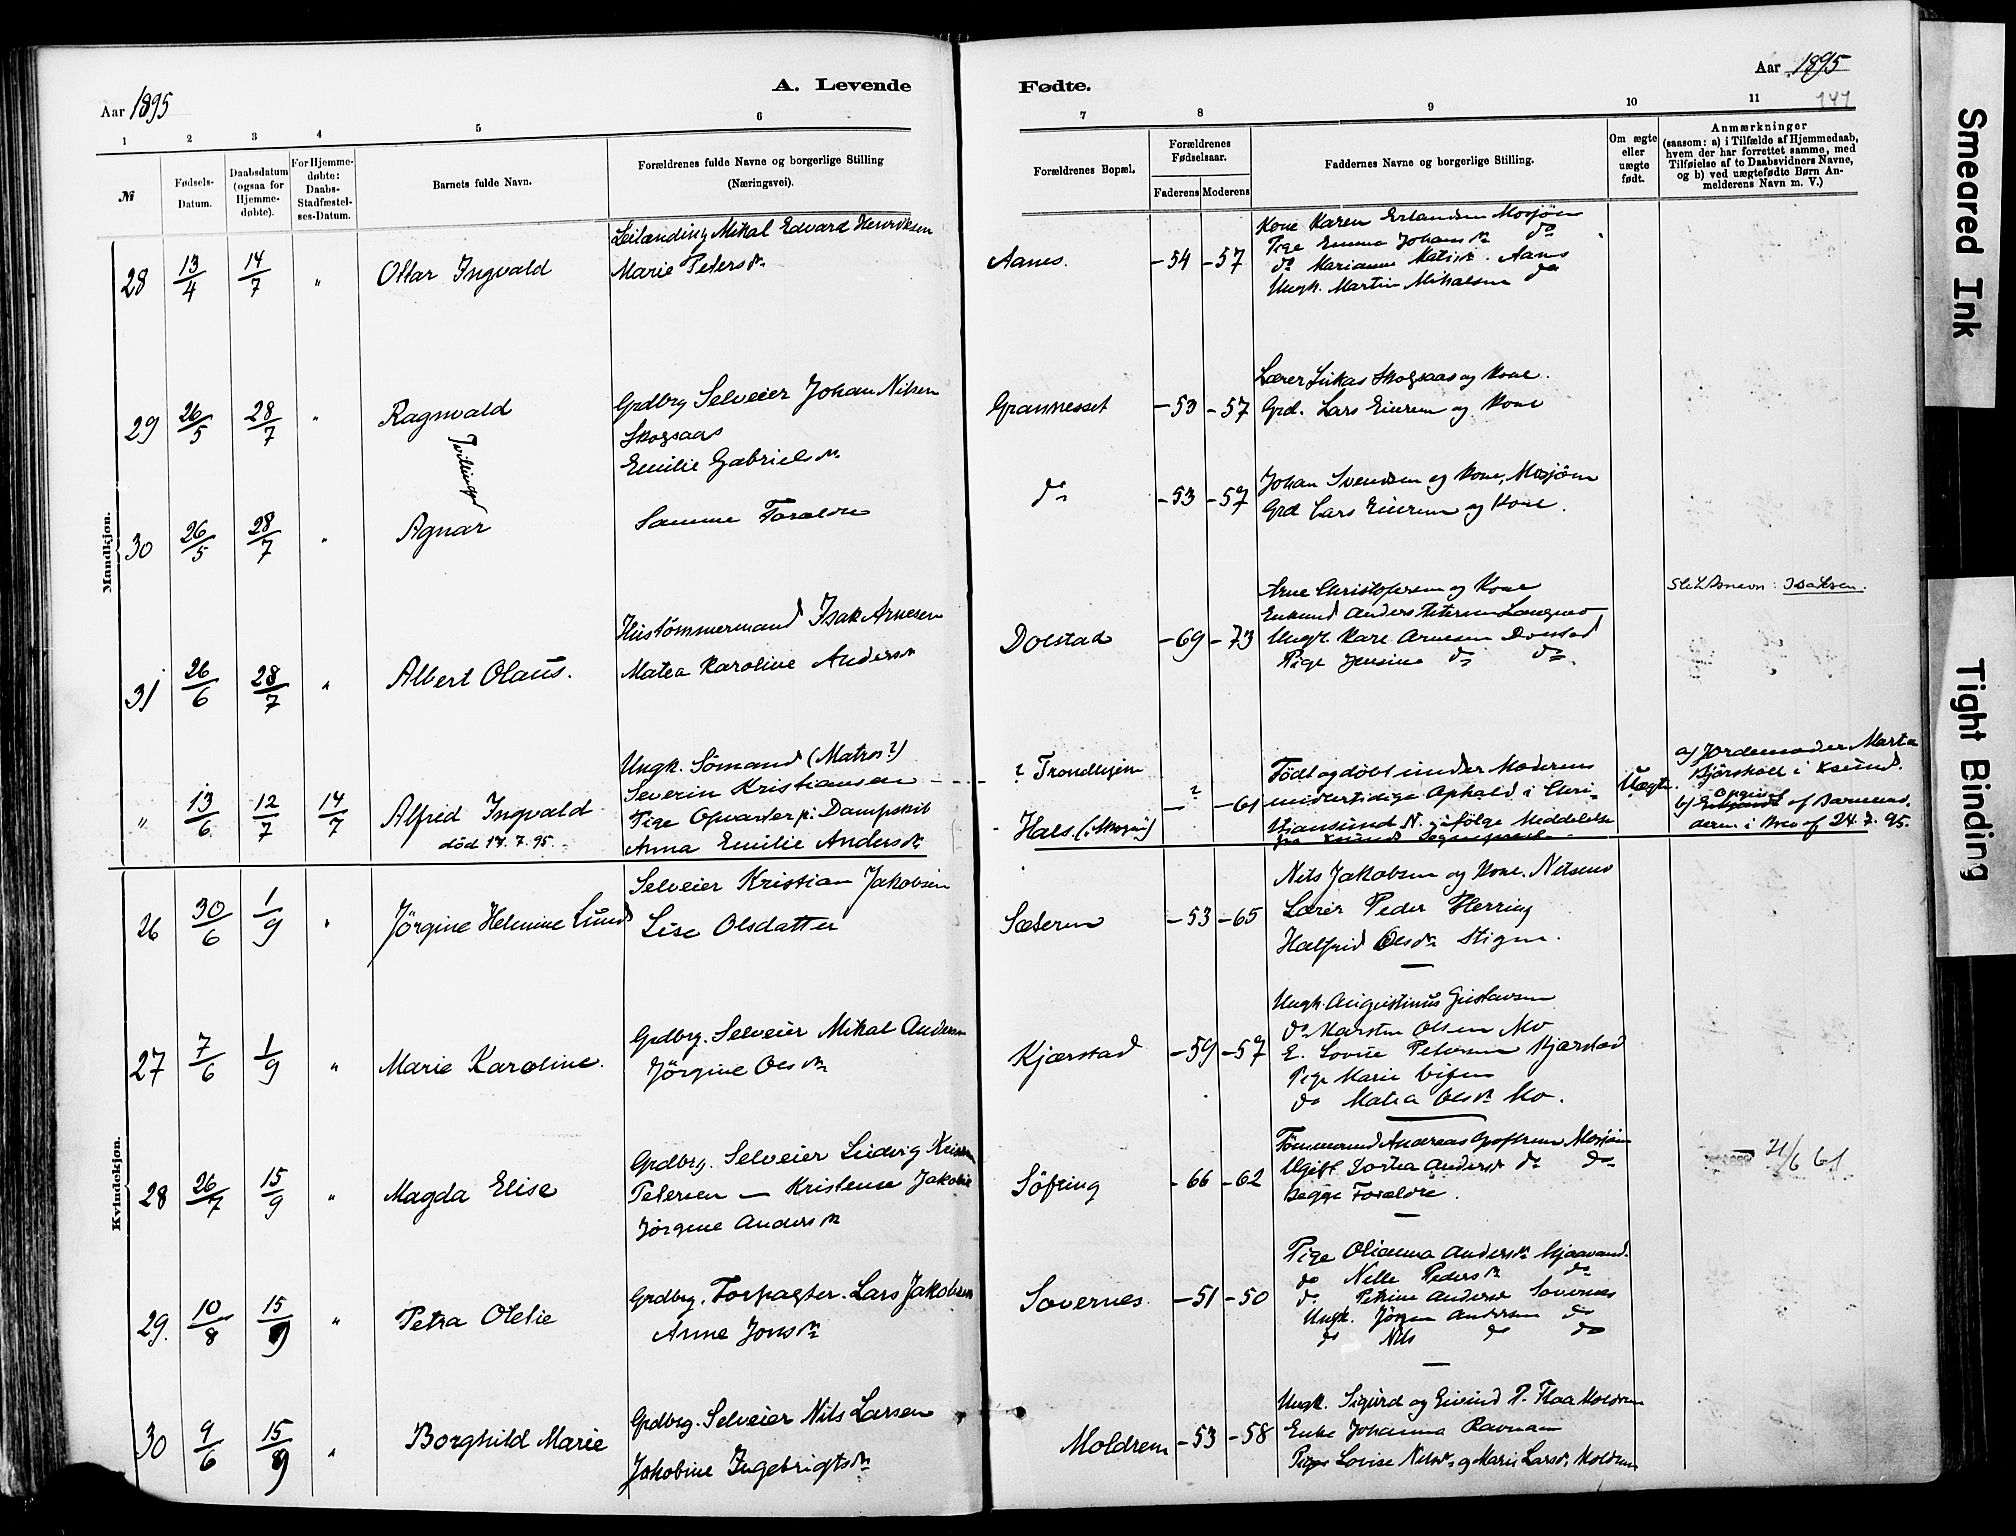 Aar 1895
A. Levende
1 2 3 4 5 6
№
Fødsels-Datum.
Daabsdatum (ogsaa for Hjemmedøbte).
For Hjemmedøbte: Daabs-Stadfæstelses-Datum.
Barnets fulde Navn.
Forældrenes fulde Navne og borgerlige Stilling (Næringsvei).
Mandkjøn.
28 13/4 14/7 " Ottar Ingvald
Leilænding Mikal Edvard Henriksen
Marie Petersdr
29 26/5 28/7 " Ragnvald
Grdbrg Selveier Johan Nilsen
Skogsaas
Emilie Gabrielsdr
Tvillinger
30 26/5 28/7 " Agnar
Samme Forældre
31 26/6 28/7 " Albert Olaus.
Hustømmermand Isak Arnesen
Matea Karoline Andersdr
" 13/6 12/7 14/7 Alfred Ingvald
død 17.7.95.
Ungk. Sømand (Matros?)
Severin Kristiansen
Pige Opvarter p: Dampskib
Anna Emilie Andersdr
Kvindekjøn.
26 30/6 1/9 " Jørgine Helmine Lund
Selveier Kristian Jakobsen
Lise Olsdatter
27 7/6 1/9 " Marie Karoline.
Grdbrg. Selveier Mikal Andersen
Jørgine Olsdr
28 26/7 15/9 " Magda Elise
Grdbrg. Selveier Ludvig
Petersen — Kristense
Jørgine Andersdr
29. 10/8 15/9 " Petra Oletie
Grdbrg. Forpagter. Lars Jakobsen
Anne Jonsdr
30 9/6 15/9 " Borghild Marie
Grdbrg. Selveier Nils Larsen
Jakobine Ingebrigtsdr
Fødte.
Aar 1895
141
7 8 9 10 11
Forældrenes Bopæl.
Forældrenes Fødselsaar.
Faderens Moderens
Faddernes Navne og borgerlige Stilling.
Om ægte eller uægte født.
Anmærkninger
(saasom: a) i Tilfælde af Hjemmedaab, hvem der har forrettet samme, med Tilføielse af to Daabsvidners Navne, og b) ved uægtefødte Børn Anmelderens Navn m. V.)
Aanes. -54 -57
Kone Karen Erlandsen Mosjøen
Pige Emma Johansdr do
do Marianne Aanes
Ungk. Martin Mikalsen do
Grannesset -53 -57
Lærer Lukas Skogsaas og Kone.
Grd. Lars Eiterem og Kone
do -53 -57
Johan Svendsen og Kone, Mosjøen
Grd Lars Eiterem og Kone.
Dolstad -69 -73
Arne Christofersen og Kone
Enkemd Anders Petersen
Ungk. Karl Arnesen Dolstad
Pige Jensine do do.
Slektsnavn: Isaksen.
? Trondhjem
Hals. (Mosjø) — ? -61
Født og døbt under Moderens
midlertidige Ophold i Chri-
stiansund N. ifølge Meddelelse
Uægte.
a) Jordemoder Marta
i Ksund.
b) Opgivet af Barnemo-
deren i Brev af 24.7.95.
Sæteren -53 -65
Nils Jakobsen og Kone.
Lærer Peder Herring
Halfrid Olsdr Stigen.
Kjærstad -59 -57
Ungk. Augustinus Gustavsen
do Karsten Olsen Mo
E. Lovise Petersen Kjærstad
Pige Marie
do Matea Olsdr Mo.
Søfting -66 -62
Tømmermd Andreas Mosjøen
Ugift Dortea Andersdr do do
Begge Forældre.
21/6 61
Sovernes -51 -50
Pige Olianna Andersdr
do Nelle Pedersdr do
do Petrine Andersdr Sovernes
Ungk. Jørgen Andersen do
do Nils do do
Moldrem -53 -58
Ungk. Sigurd og Eivind P. Flaa Moldrem
Enke Johanna Ravnaa
Pige Lovise Nilsdr og Marie Larsdr. Moldrem
Smeared Ink
Tight Binding